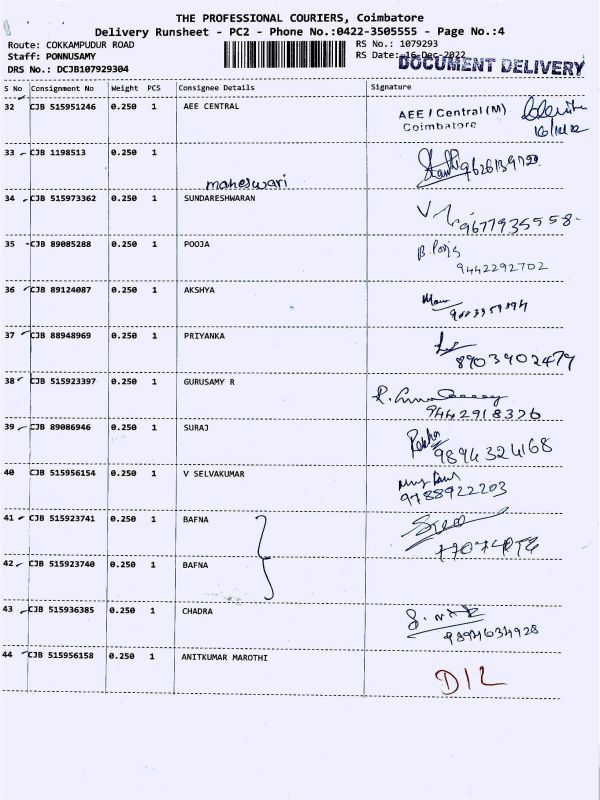 THE PROFESSIONAL COURIERS, Coimbatore
Delivery Runsheet - PC2 - Phone No.:0422-3505555 - Page No.:4
Route: COKKAMPUDUR ROAD
RS No.: 1079293
Staff: PONNUSAMY
RS Date: 16-Dec-2022
DOCUMENT DELIVERY
DRS No.: DCJB107929304
S No Consignment No Weight PCS Consignee Details Signature
32 CJB 515951246 0.250 1 AEE CENTRAL AEE / Central (M)
Coimbatore
16/12/22
33 CJB 1198513 0.250 1
maheswari
34 CJB 515973362 0.250 1 SUNDARESHWARAN
9677935558
35 CJB 89085288 0.250 1 POOJA
9442292702
36 CJB 89124087 0.250 1 AKSHYA
37 CJB 88948969 0.250 1 PRIYANKA
8903902479
38 CJB 515923397 0.250 1 GURUSAMY R
9442918326
39 CJB 89086946 0.250 1 SURAJ
9894324168
40 CJB 515956154 0.250 1 V SELVAKUMAR
9788922203
41 CJB 515923741 0.250 1 BAFNA
42 CJB 515923740 0.250 1 BAFNA
43 CJB 515936385 0.250 1 CHADRA
9894634928
44 CJB 515956158 0.250 1 ANITKUMAR MAROTHI
D/L